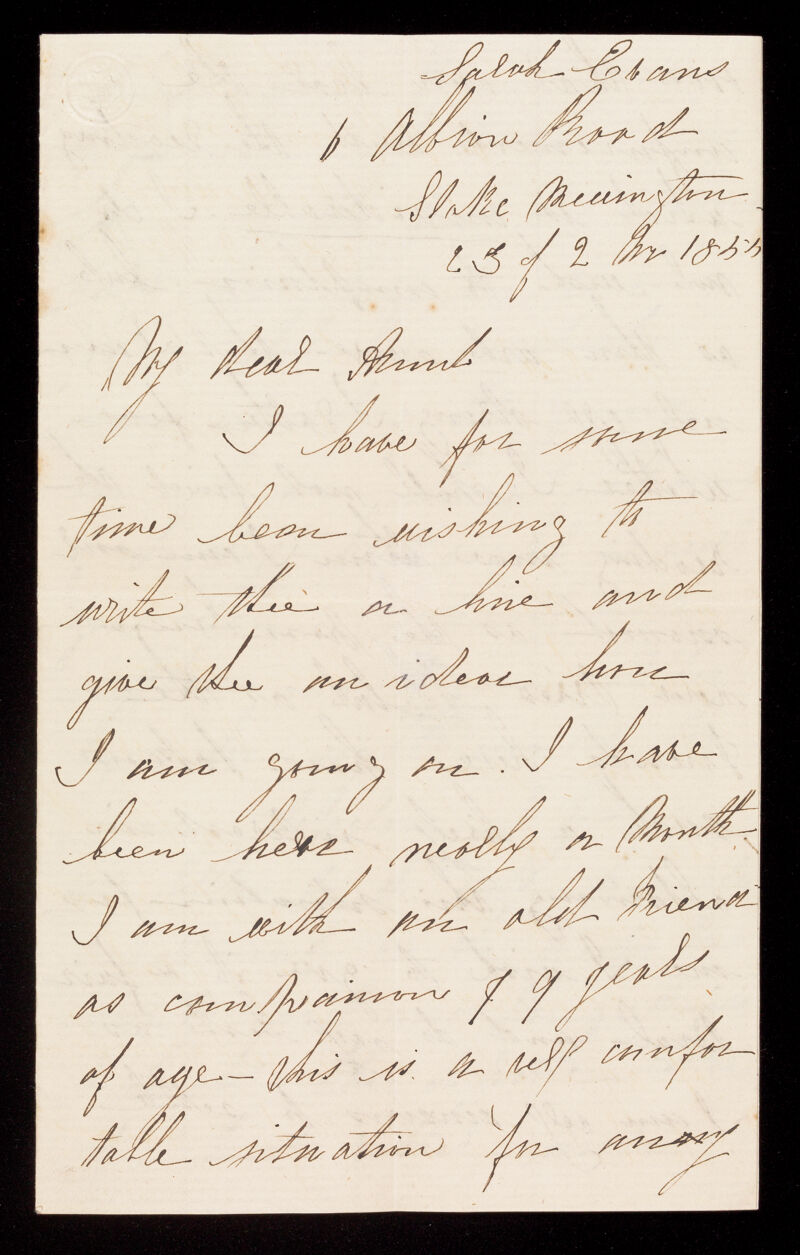 Sarah Evans
6 Albion Road
Stoke Newington
23 of 2 Mo 1855
My dear Aunt
I have for some
time been wishing to
write thee a line and
give thee an idear how
I am going on. I have
been here nearly a Month
I am with an old Friend
as companion 79 years
of age - this is a very comfor
table situation for anany